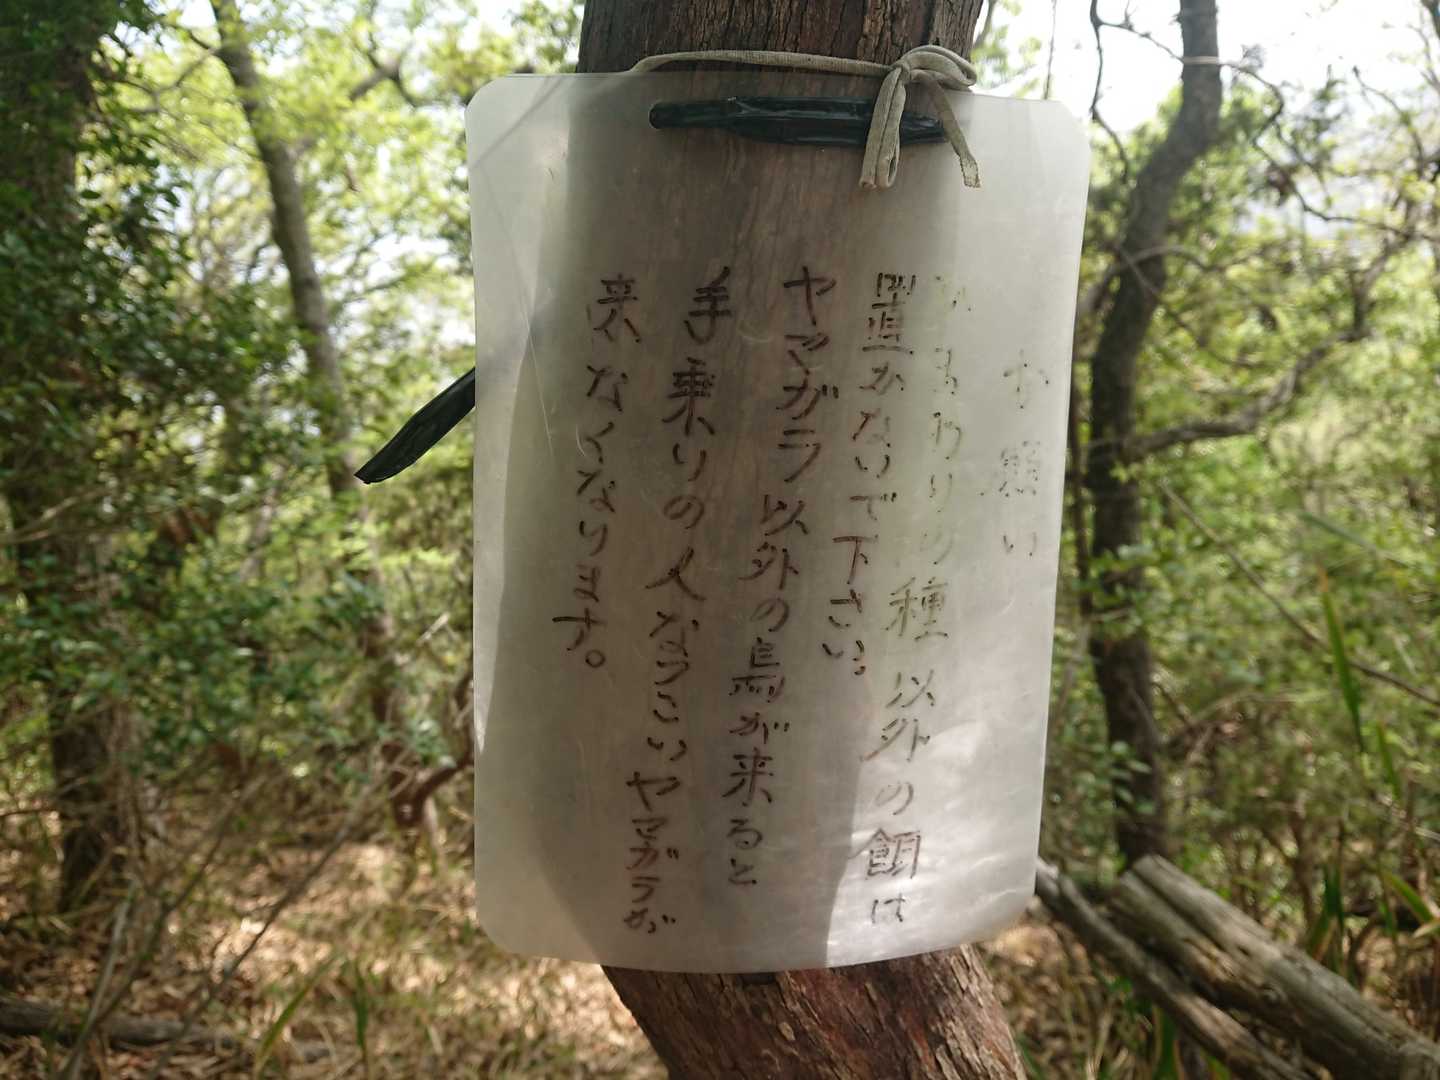 お願い
ひまわりの種以外の餌は
置かないで下さい。
ヤマガラ以外の鳥が来ると
手乗りの人なつこいヤマガラが
来なくなります。